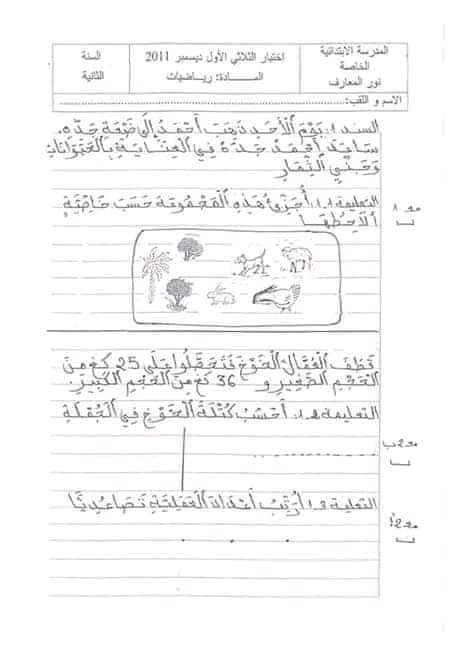 المدرسة الابتدائية
الخاصة
نور المعارف
اختبار الثلاثي الأول ديسمبر 2011
المـــادة: رياضيات
السنة
الثانية
الاسم و اللقب:
السند 1: يَوْمَ الْأَحَدِ ذَهَبَ أَحْمَدُ إِلَى ضَيْعَةِ جَدِّهِ.
سَاعَدَ أَحْمَدُ جَدَّهُ فِي الْعِنَايَةِ بِالْحَيَوَانَاتِ
وَجَنْيِ الثِّمَارِ
التعليمة 1.1: أُجَزِّئُ هَذِهِ الْمَجْمُوعَةَ حَسَبَ خَاصِّيَّةٍ
أُلَاحِظُهَا
مع 8
قَطَفَ الْعُمَّالُ الْخَوْخَ فَتَحَصَّلُوا عَلَى 25 كغ مِنَ
الْحَجْمِ الصَّغِيرِ و 36 كغ مِنَ الْحَجْمِ الْكَبِيرِ.
التعليمة 1.2: أَحْسُبُ كُتْلَةَ الْخَوْخِ فِي الْجُمْلَةِ
مع 2 ب
التعليمة 1.3: أُرَتِّبُ أَعْدَادَ الْعَمَلِيَّةِ تَصَاعُدِيًّا
مع 2 أ